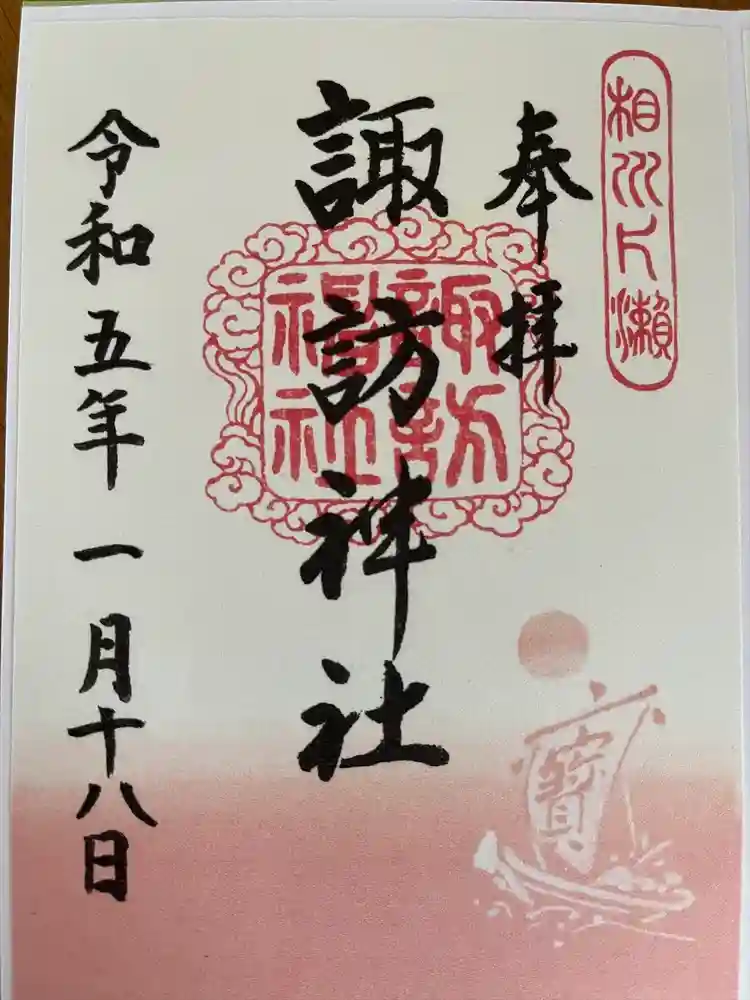 相州片瀬
奉拝
諏訪神社
諏訪神社
令和五年一月十八日
寶